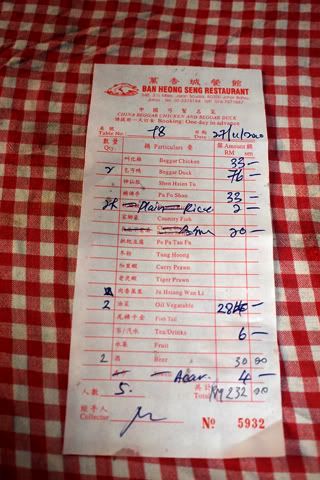 萬香城餐館
BAN HEONG SENG RESTAURANT
中國弓製名菜
CHINA BEGGAR CHICKEN AND BEGGAR DUCK
Booking: One day in advance
Table No. T8 Date 27/11/200
數量 Qty. Particulars Amount RM sen
叫化雞 Beggar Chicken 33 —
2 Beggar Duck 76 —
Shen Hsien Tu
佛跳牆 Fu Fu Shou 33 —
Plain Rice 2 —
Country Fish
20 —
Pu Pu Tau Fu
冬粉 Tung Hoong
咖喱蝦 Curry Prawn
老虎蝦 Tiger Prawn
Ju Hsiang Wan Li
2 油菜 Oil Vegetable —
Fish Tail
茶/汽水 Tea/Drinks 6 —
水果 Fruit
2 酒 Beer 30 00
Acar 4 —
人數 5. 共計 Total RM 232 00
經手人
Collector
Nº 5932